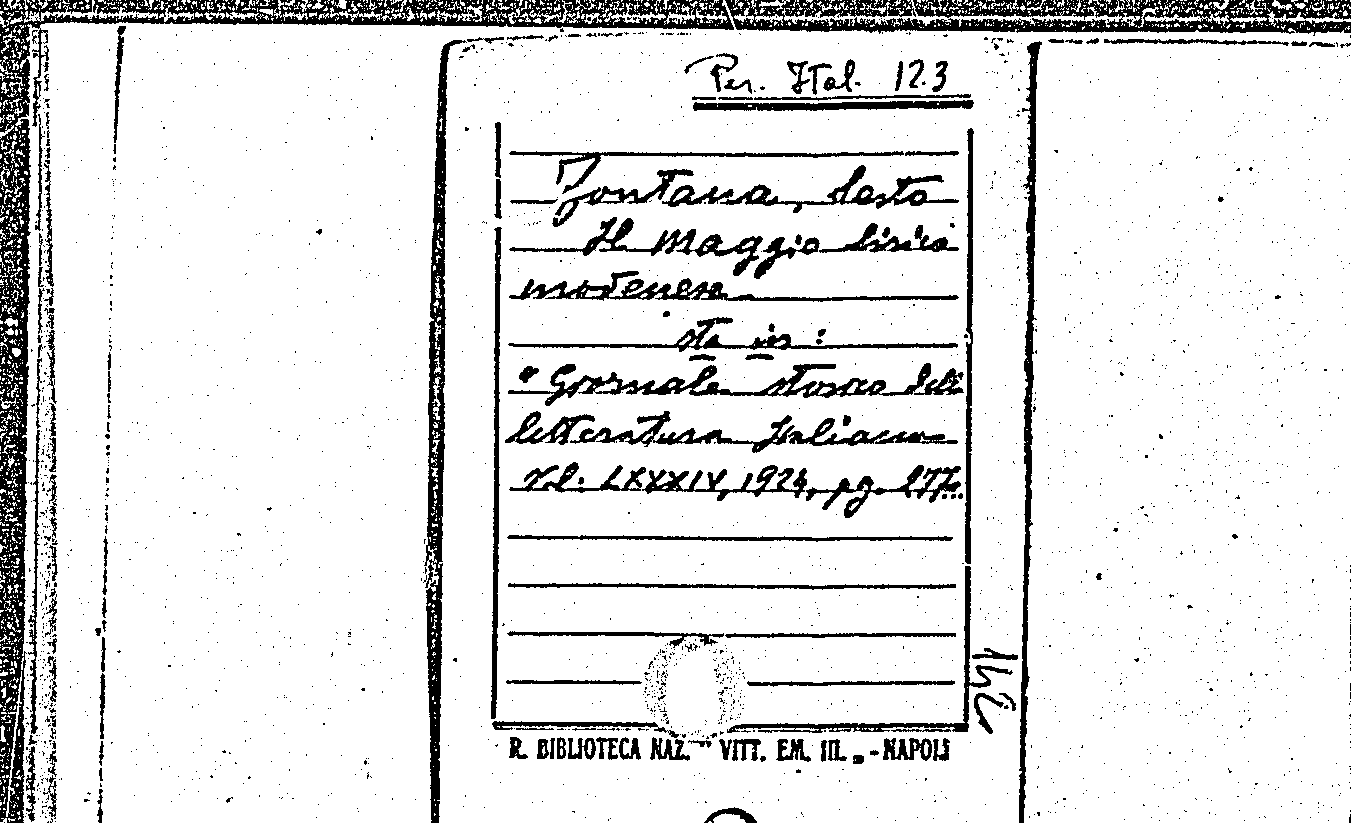 Per. Ital. 12.3
Fontana, Sesto
Il Maggio lirico
modenese
sta in:
"Giornale storico della
letteratura Italiana
vol. LXXXIV, 1924, pg. 277...
142
R. BIBLIOTECA NAZ. " VITT. EM. III. „ - NAPOLI